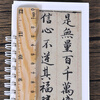 是無量百千萬
信心不逆其福勝